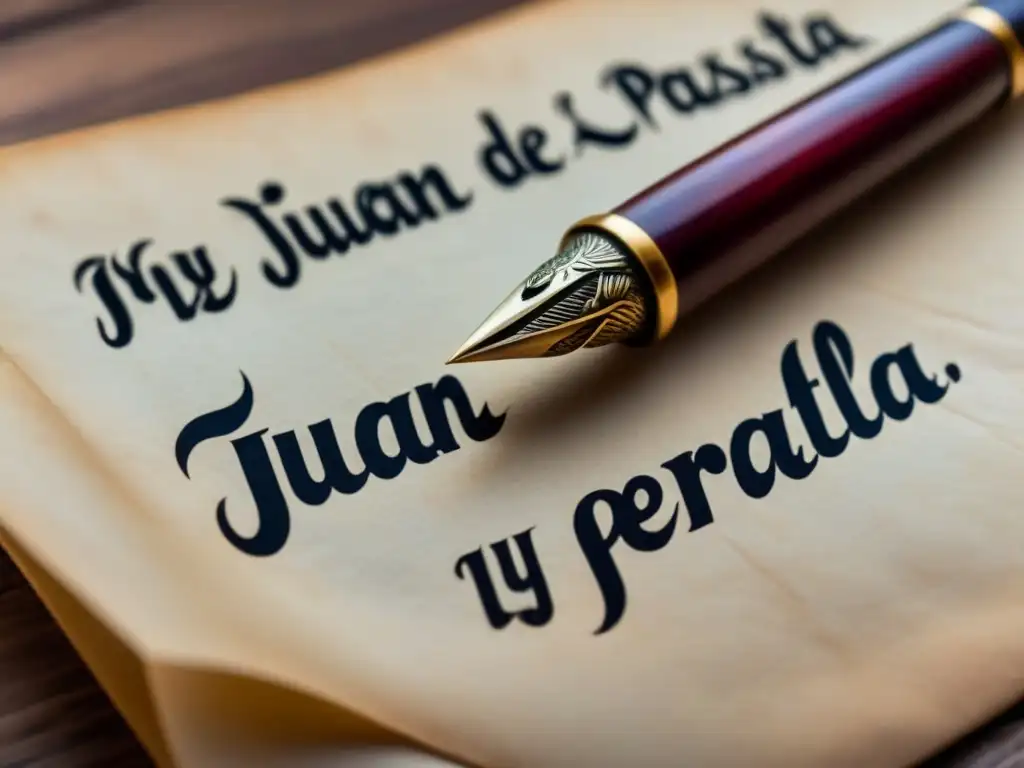 Juan de Passta
Juan
uy peratla.